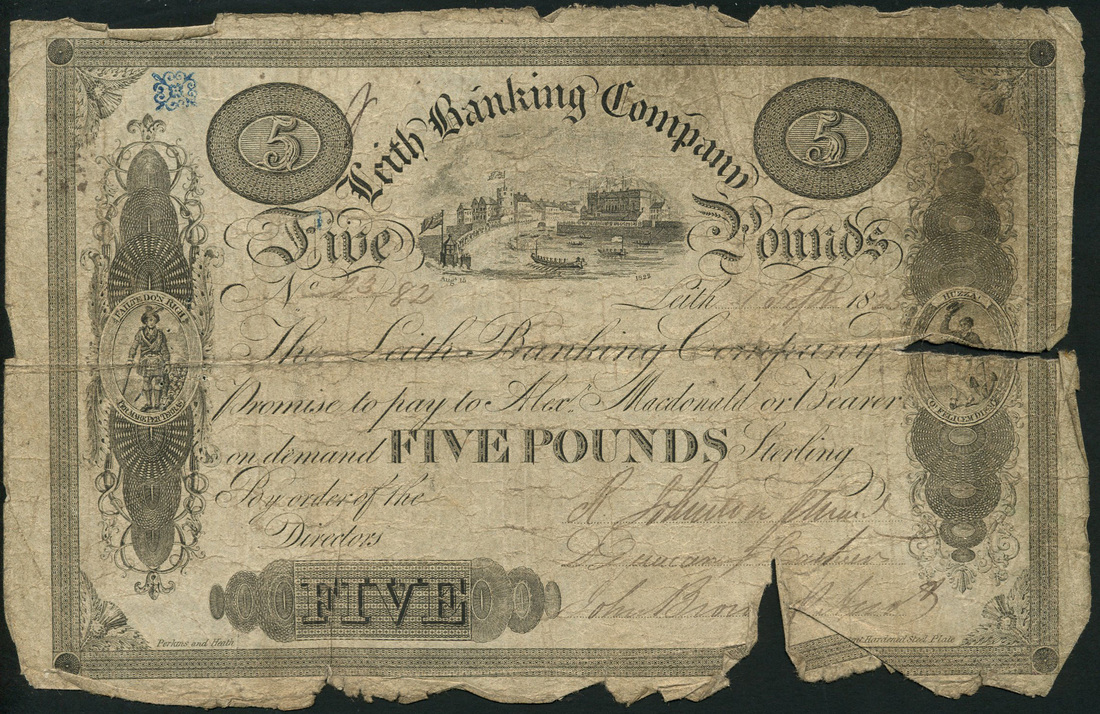 5 5
Leith Banking Company
Five Pounds
Augt. 15 1822
No 23/82 Leith 1 Sept 182
FAILTE DO'N RIGH
HUZZA!
O! FELICEM DIEM
The Leith Banking Company
Promise to pay to Alexr. Macdonald or Bearer
on demand FIVE POUNDS Sterling
By order of the
Directors
R. Johnston
Duncan Cashier
John Brown
FIVE
Perkins and Heath
Hardened Steel Plate